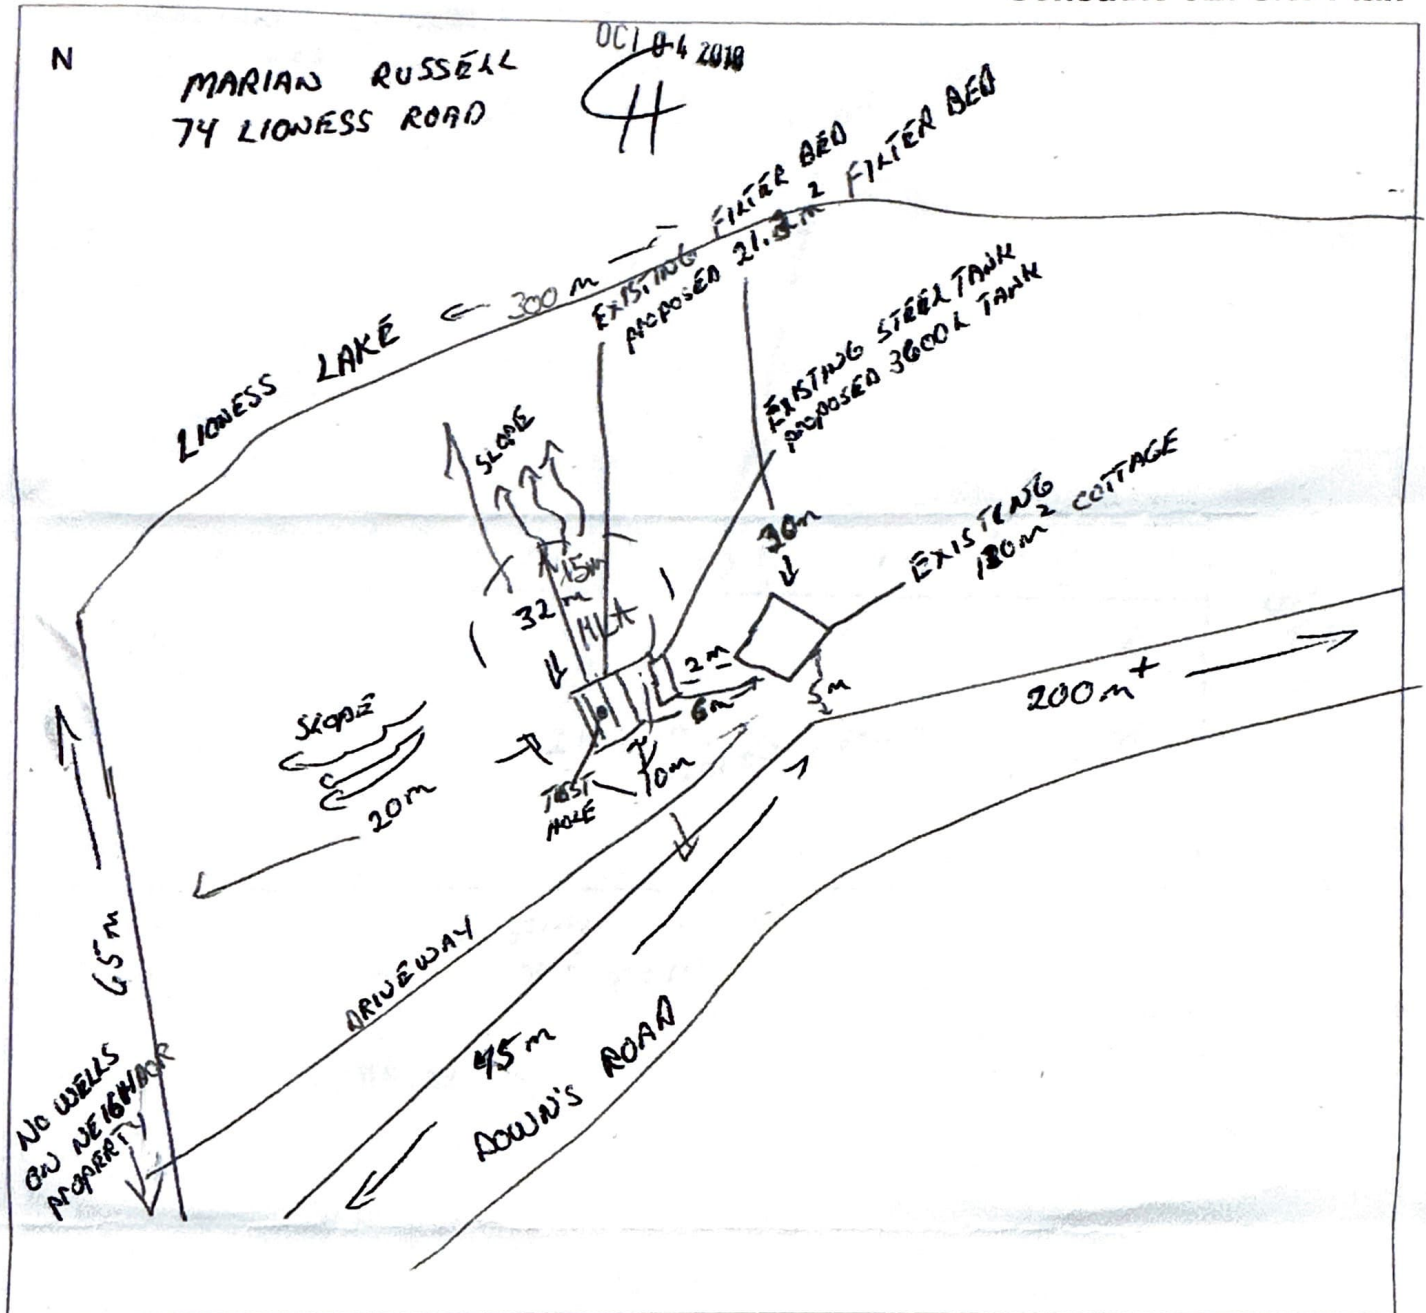 N
MARIAN RUSSELL
74 LIONESS ROAD
OCT 04 2010
LIONESS LAKE
← 300 m →
EXISTING FILTER BED
PROPOSED 21. m² FILTER BED
EXISTING STEEL TANK
PROPOSED 3600 L TANK
EXISTING
m² COTTAGE
SLOPE
15m
32 m
30m
2 m
6m
5m
10m
TEST
HOLE
SLOPE
20m
200m+
65m
DRIVEWAY
45m
DOWN'S ROAD
NO WELLS
ON NEIGHBOR
PROPERTY